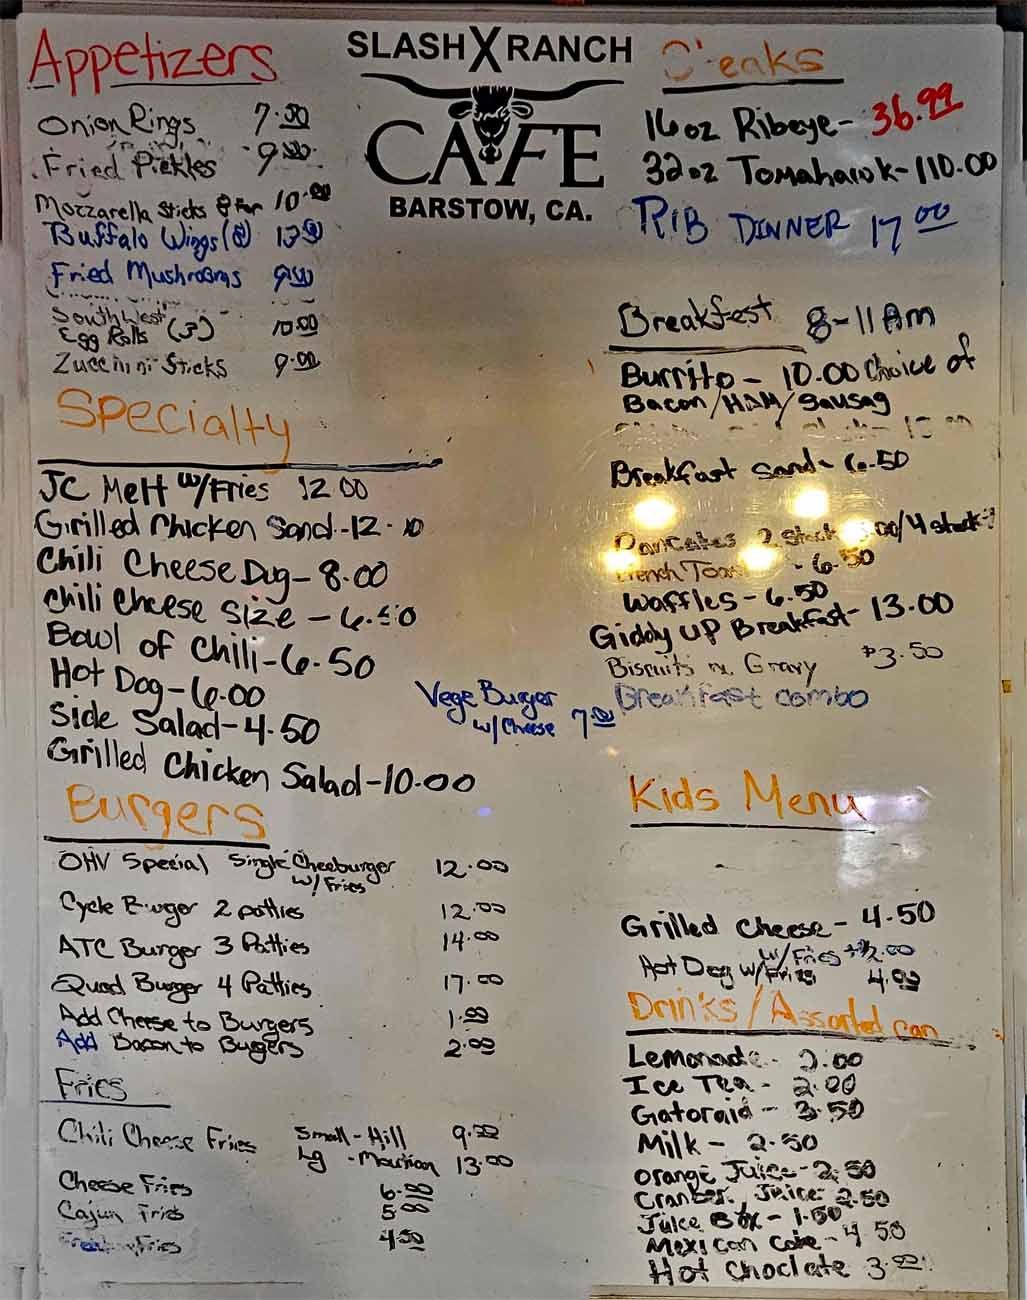 SLASH X RANCH
CAFE
BARSTOW, CA.
Appetizers
Onion Rings 7.00
Fried Pickles 9.00
Mozzarella Sticks 10.00
Buffalo Wings (8) 13.00
Fried Mushrooms 9.00
South West
Egg Rolls (3) 10.00
Zuccinni Sticks 9.00
Specialty
JC Melt w/Fries 12 00
Grilled Chicken Sand.-12.
Chili Cheese Dog- 8.00
Chili Cheese Size - 6.50
Bowl of Chili-6.50
Hot Dog-6.00
Side Salad-4.50
Grilled Chicken Salad-10.00
Vege Burger
w/Cheese 7.00
Burgers
OHV Special Single Cheeburger 12.00
w/Fries
Cycle Burger 2 patties 12.00
ATC Burger 3 Patties 14.00
Quad Burger 4 Patties 17.00
Add Cheese to Burgers 1.00
Add Bacon to Burgers 2.00
Fries
Chili Cheese Fries Small-Hill 9.00
Lg -Moution 13.00
Cheese Fries 6.00
Cajun Fries 5.00
Fries 4.50
Steaks
16oz Ribeye- 36.99
32oz Tomahawk-110.00
RIB DINNER 17 00
Breakfest 8-11Am
Burrito- 10.00 Choice of
Bacon/HAM/Sausag
Breakfast Sand- 6.50
Pancakes 2 Stack 00/4 stack
French Toast - 6.50
Waffles- 6.50
Giddy UP Breakfast- 13.00
Biscuits n. Gravy $3.50
Breakfast combo
Kids Menu
Grilled Cheese- 4.50
w/Fries +2.00
Hot Dog w/Fries 4.00
Drinks/Assorted can
Lemonade- 2.00
Ice Tea- 2.00
Gatoraid- 3.50
Milk- 2.50
Orange Juice-2.50
Cranber. Juice 2.50
Juice Box-1.50
Mexican Coke-4 50
Hot Choclate 3.00